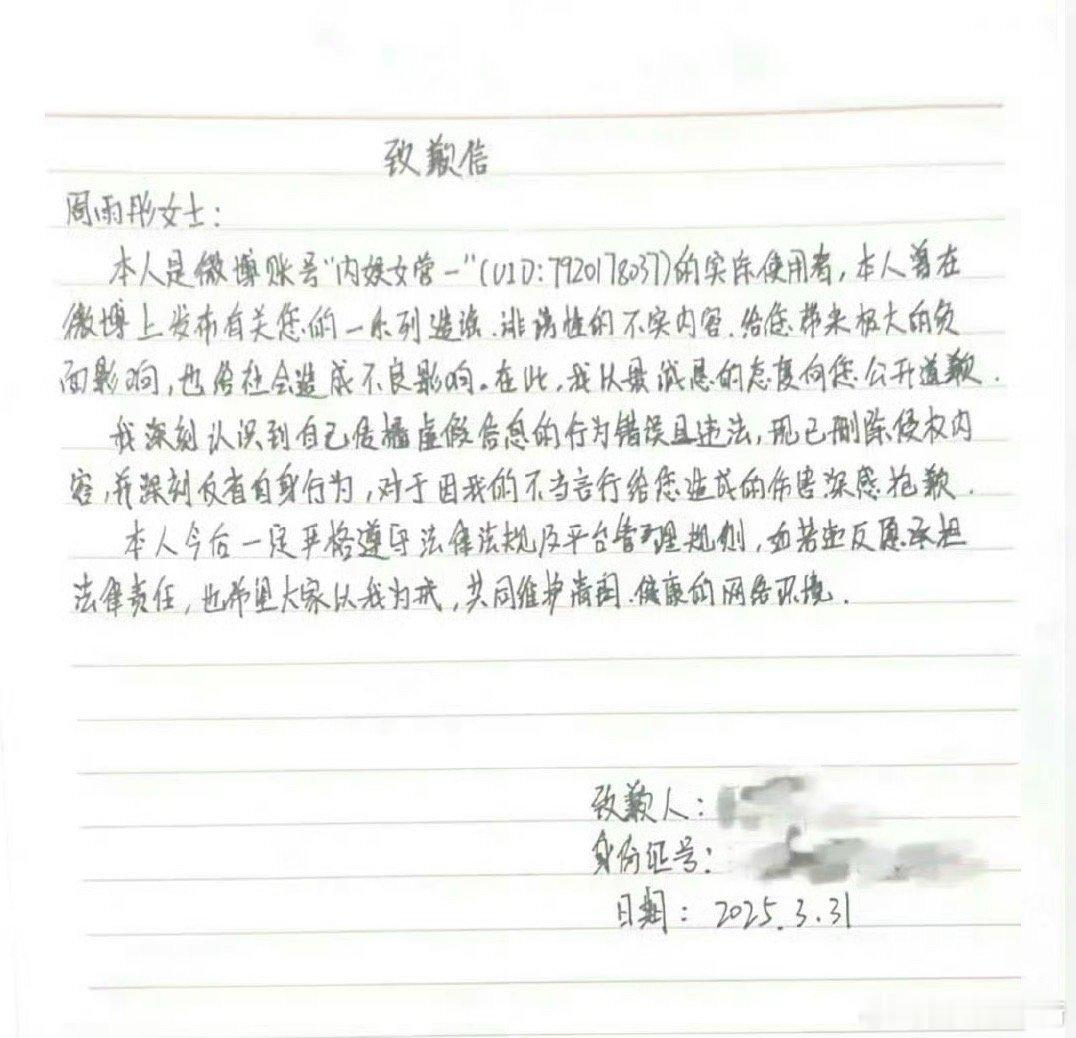 致歉信
周雨彤女士：
本人是微博账号“内娱女营一”(UID:7920178037)的实际使用者，本人曾在
微博上发布有关您的一系列造谣、诽谤性的不实内容、给您带来极大的负
面影响，也给社会造成不良影响。在此，我以最诚恳的态度向您公开道歉.
我深刻认识到自己传播虚假信息的行为错误且违法，现已删除侵权内
容，并深刻反省自身行为，对于因我的不当言行给您造成的伤害深感抱歉.
本人今后一定严格遵守法律法规及平台管理规则，如若违反愿承担
法律责任，也希望大家以我为戒，共同维护清朗、健康的网络环境.
致歉人：
身份证号：
日期：2025.3.31